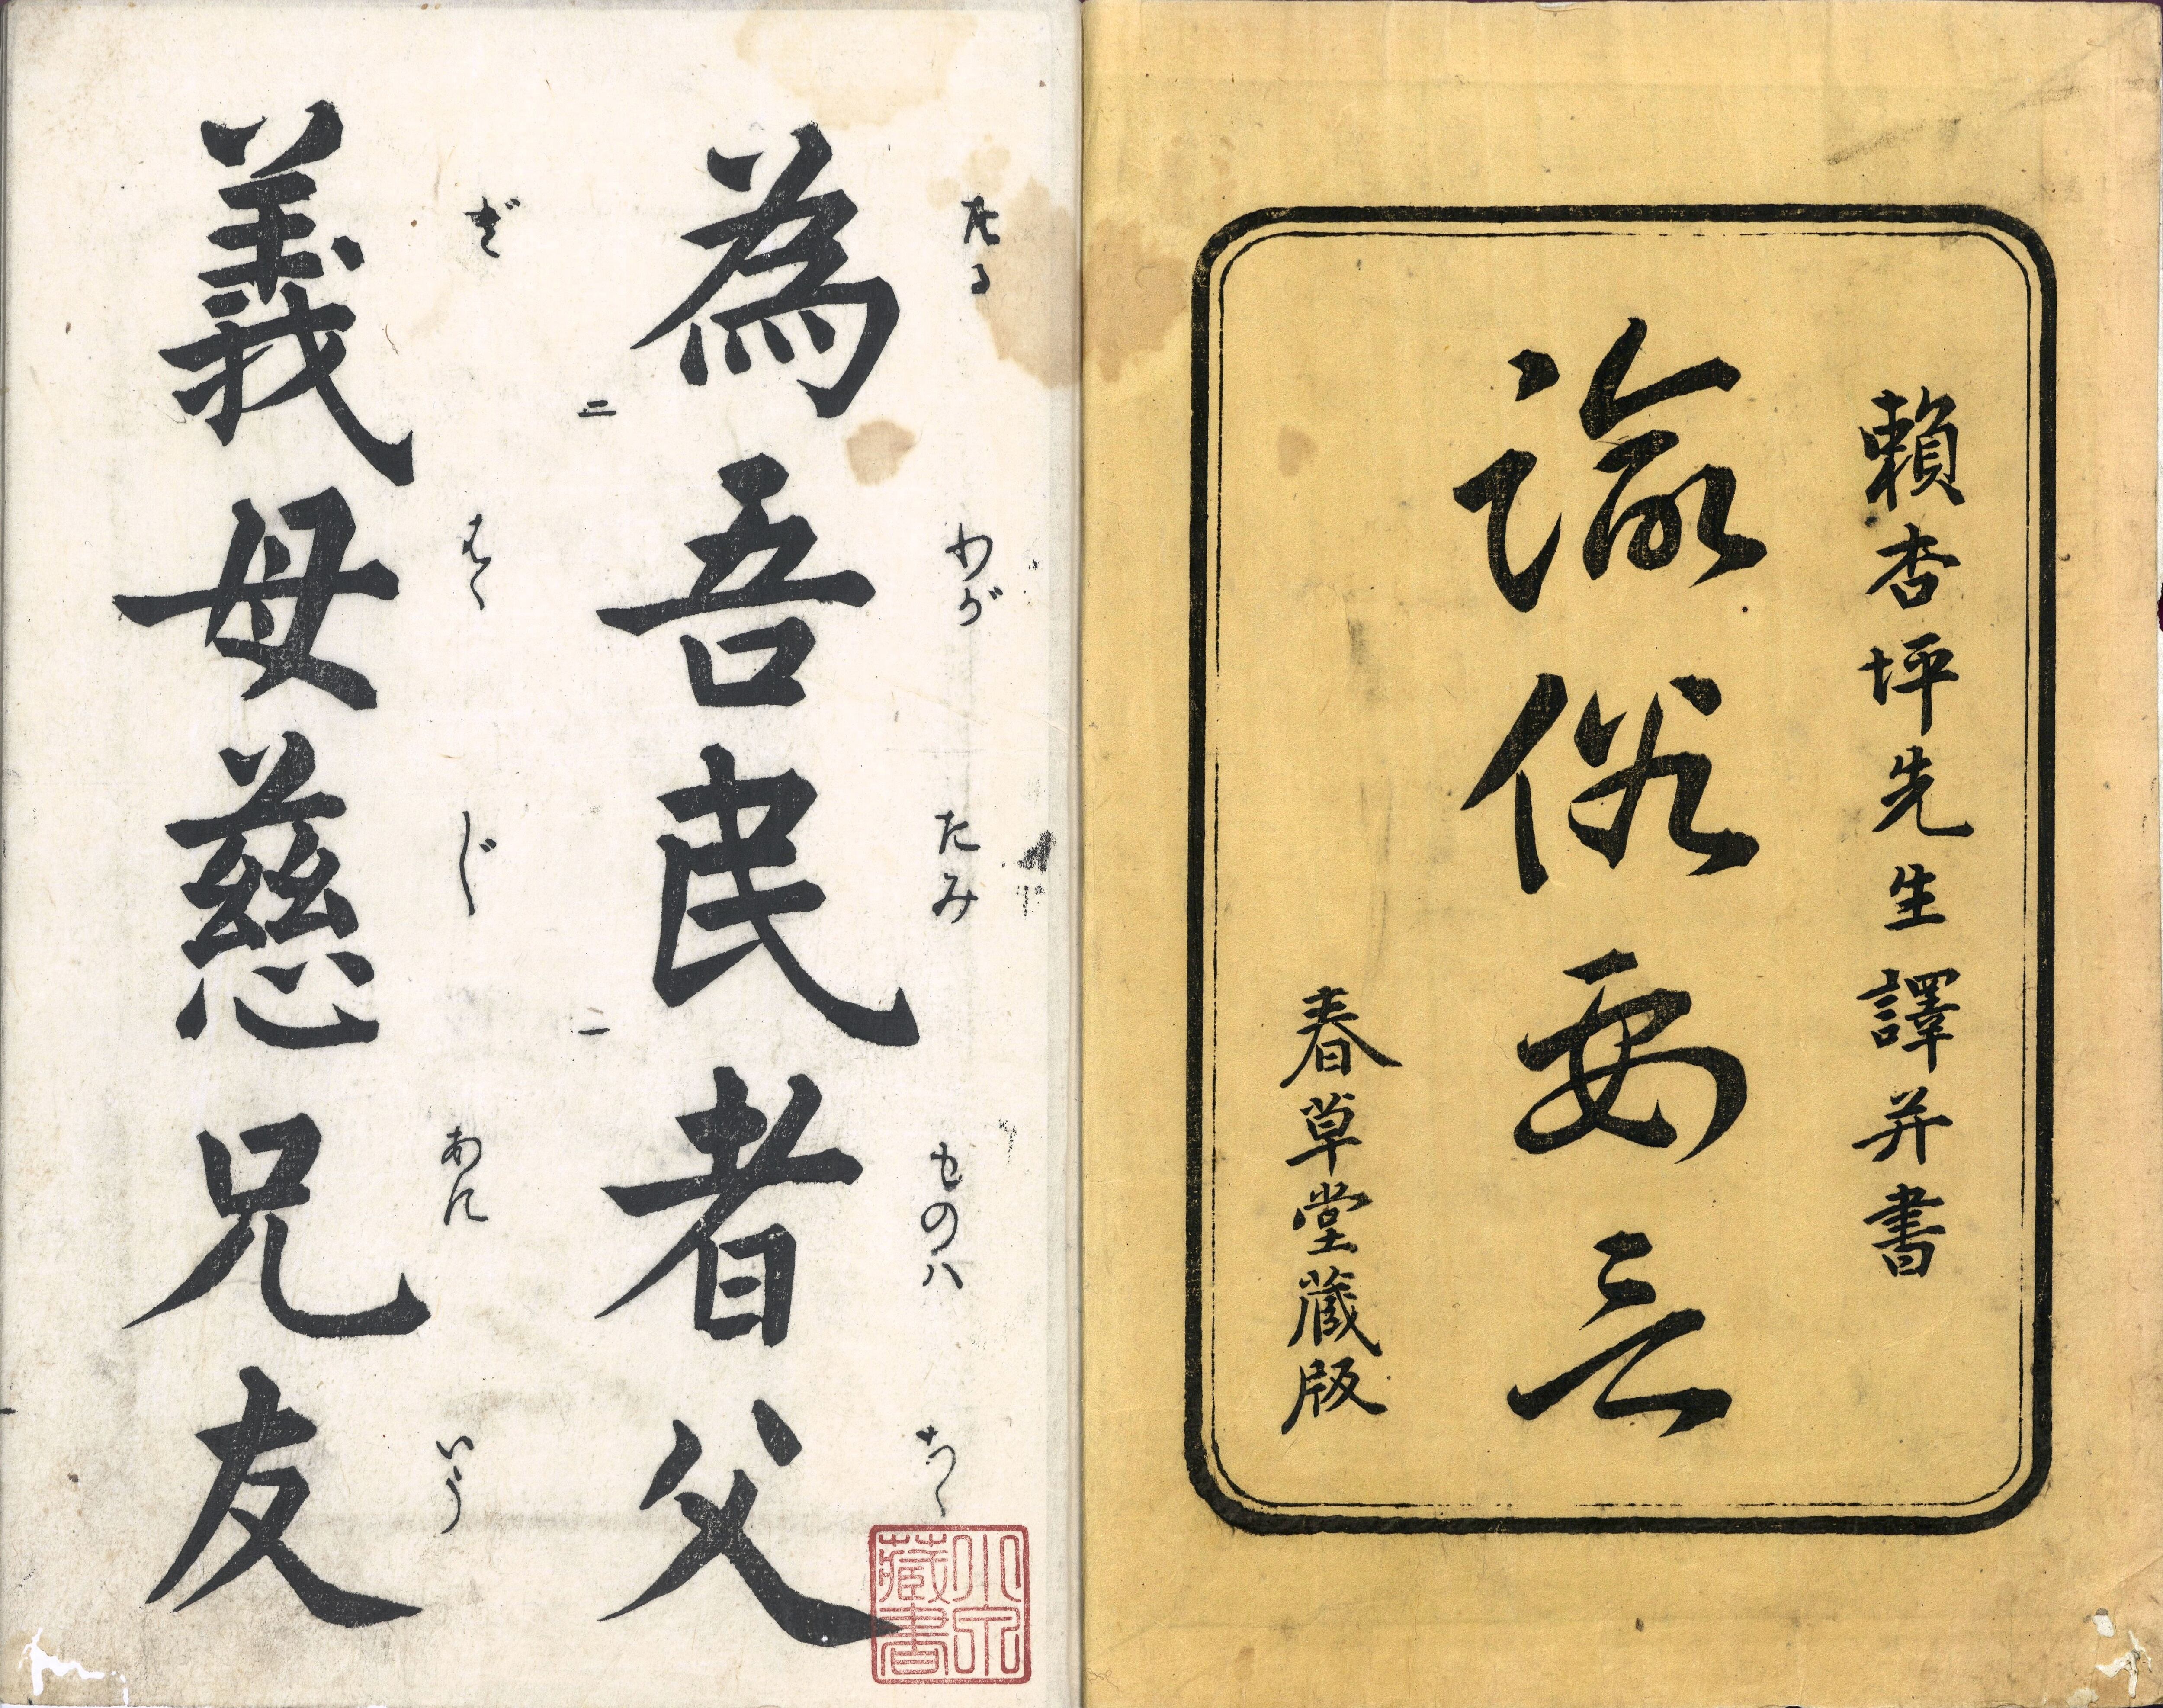 賴杏坪先生譯并書
諭俗要言
春草堂藏版
為吾民者父
たる わが たみ ものハ ちゝ
二 一
義母慈兄友
ぎ はゝ じ あに いう
藏書